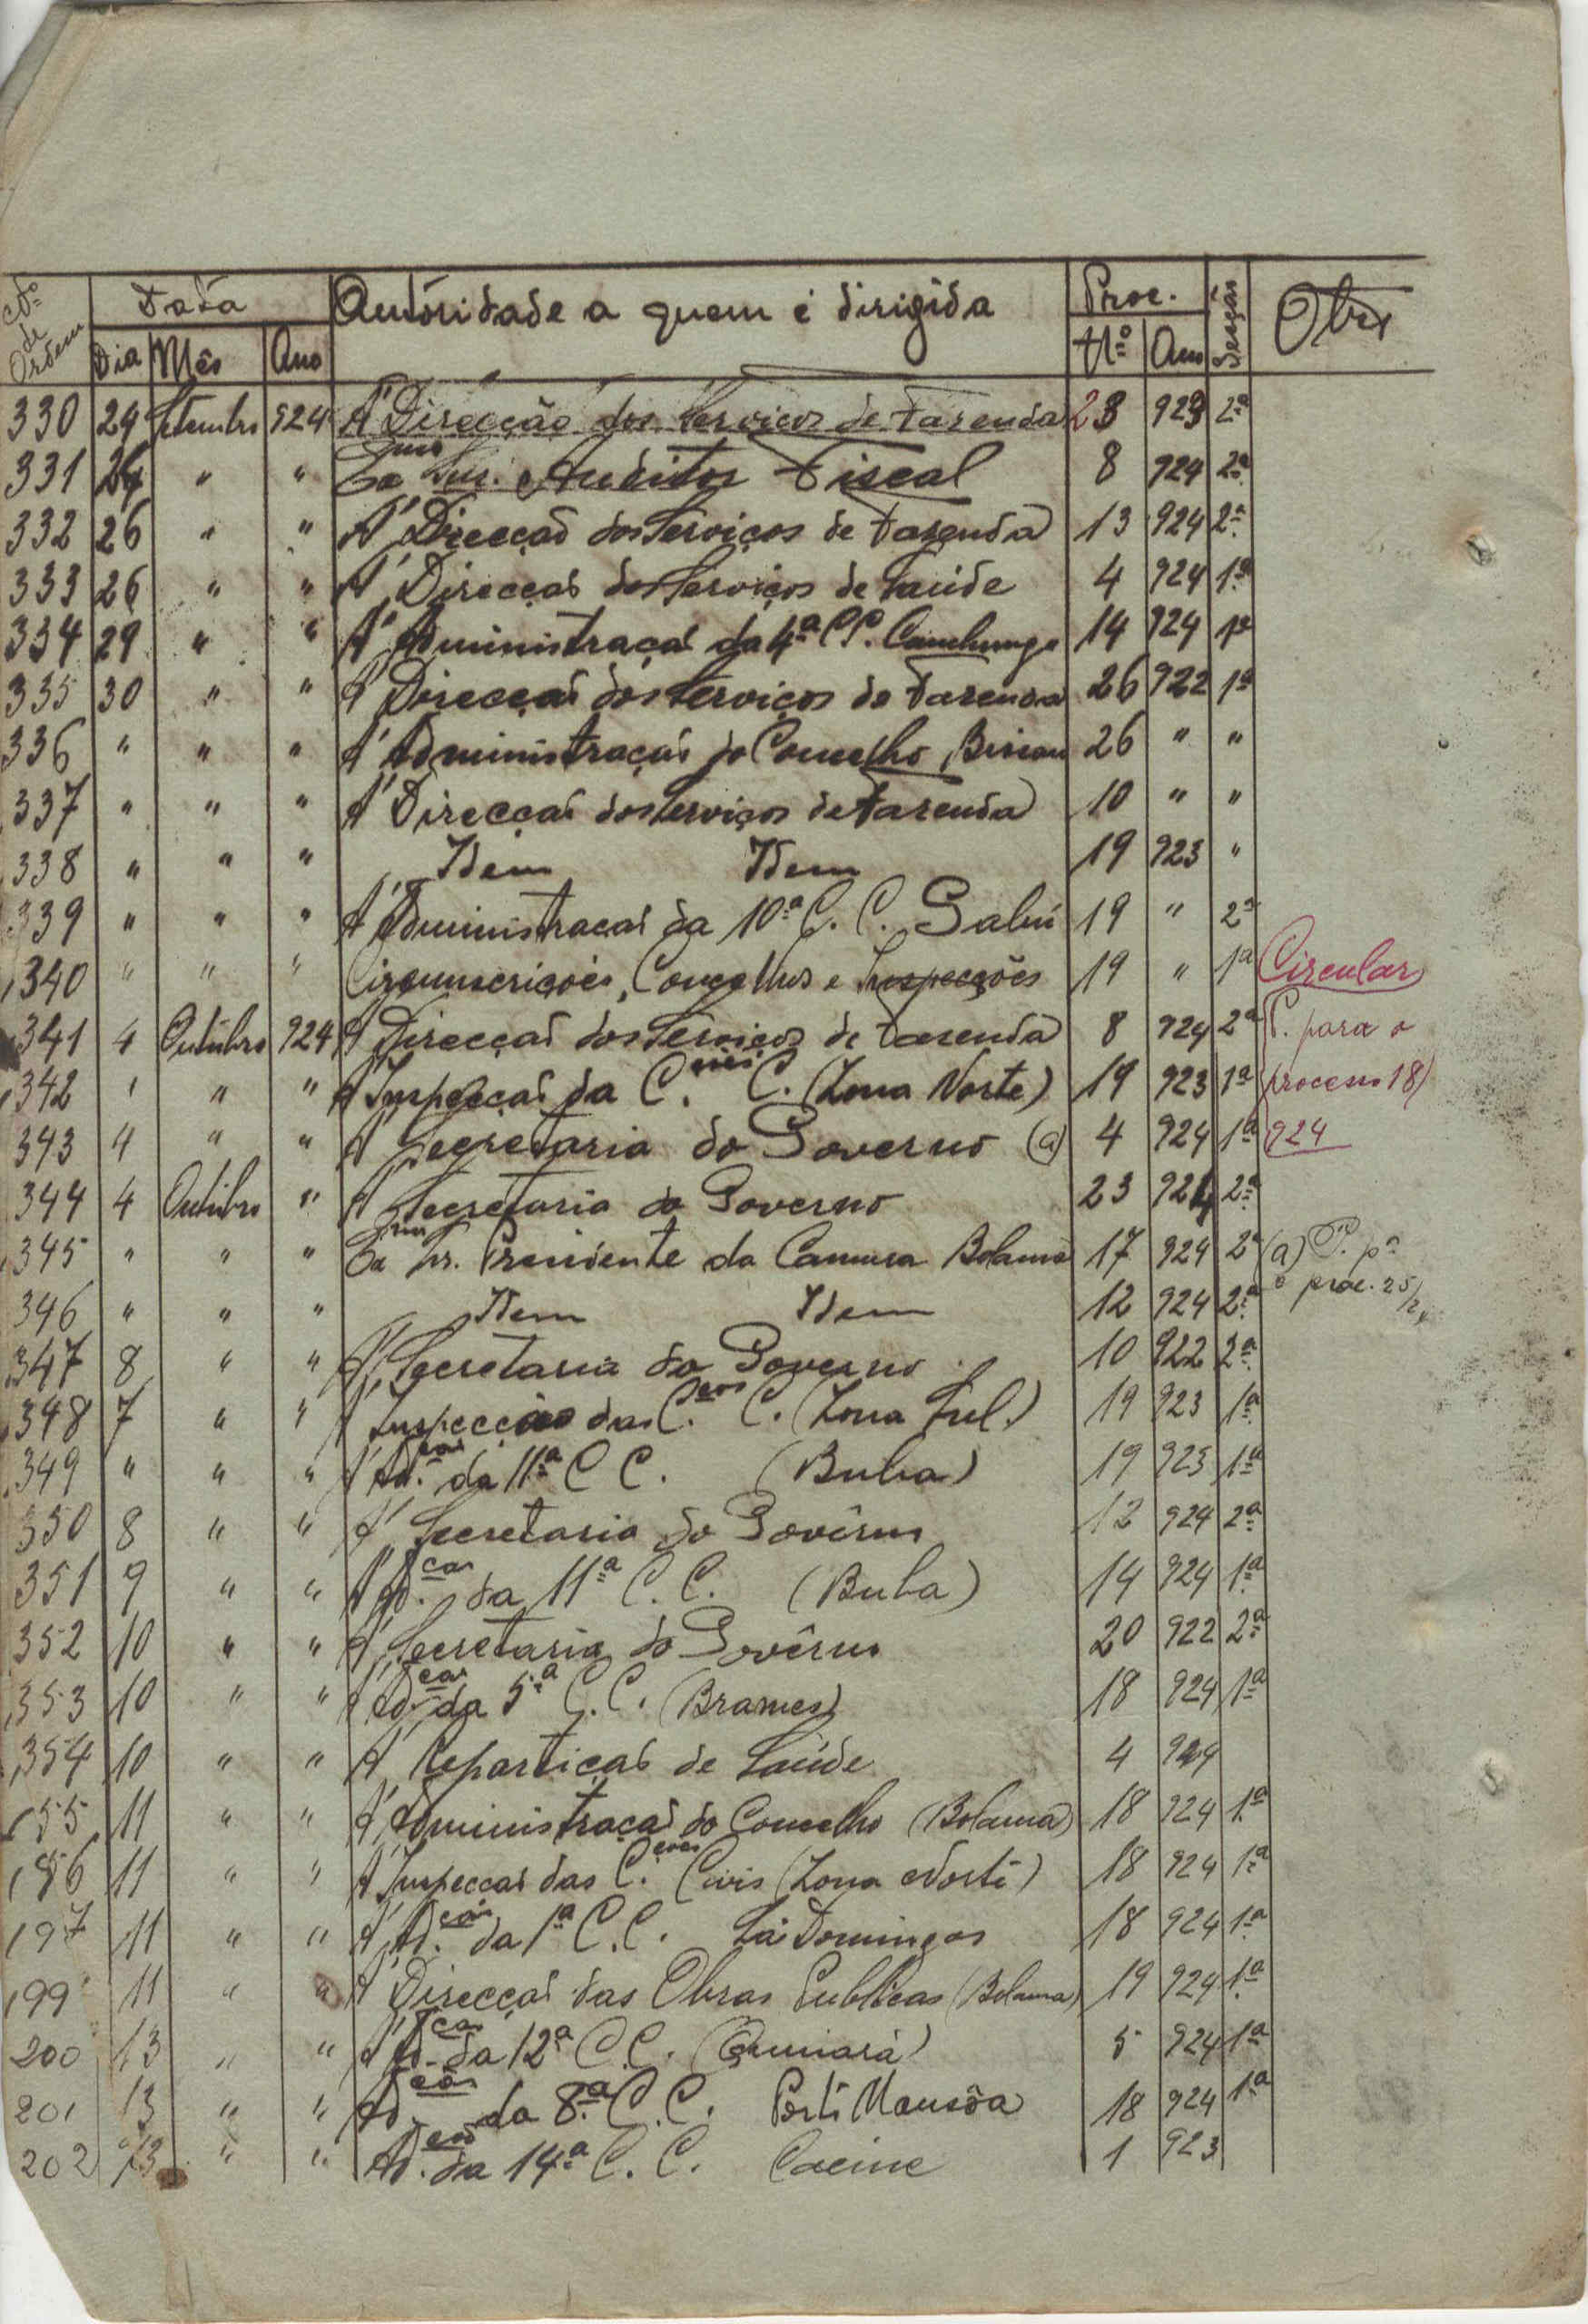 Nº de Ordem Data Autoridade a quem é dirigida Proc. Secção Obs
Dia Mês Ano Nº Ano
330 24 Setembro 924 A' Direcção dos Serviços de Fazenda 23 923 2ª
331 24 " " Exmo Snr. Auditor Fiscal 8 924 2ª
332 26 " " A' Direcção dos Serviços de Fazenda 13 924 2ª
333 26 " " A' Direcção dos Serviços de Saúde 4 924 1ª
334 29 " " A' Administração da 4ª C.C. Canchungo 14 924 1ª
335 30 " " A' Direcção dos Serviços de Fazenda 26 922 1ª
336 " " " A' Administração do Concelho, Bissau 26 " "
337 " " " A' Direcção dos Serviços de Fazenda 10 " "
338 " " " Idem Idem 19 923 "
339 " " " A' Administração da 10ª C. C. Gabú 19 " 2ª
340 " " " Circunscrições, Concelhos e Inspecções 19 " 1ª Circular
341 4 Outubro 924 A' Direcção dos Serviços de Fazenda 8 924 2ª P. para o
342 ' " " A' Inspecção da C.ções C. (Zona Norte) 19 923 1ª processo 18/
343 4 " " A' Secretaria do Governo (a) 4 924 1ª 924
344 4 Outubro " A' Secretaria do Governo 23 924 2ª
345 " " " Exmo Sr. Presidente da Camara Bolama 17 924 2ª (a) P. pª
346 " " " Idem Idem 12 924 2ª o proc. 25/24
347 8 " " A' Secretaria do Governo 10 922 2ª
348 7 " " A' Inspecção das C.ções C. (Zona Sul.) 19 923 1ª
349 " " " A' Ad.ção da 11ª C C. (Buba) 19 923 1ª
350 8 " " A' Secretaria do Govêrno 12 924 2ª
351 9 " " A' Ad.ção da 11ª C. C. (Buba) 14 924 1ª
352 10 " " A' Secretaria do Govêrno 20 922 2ª
353 10 " " A' Ad.ção da 5ª C. C. (Brames) 18 924 1ª
354 10 " " A' Repartição de Saúde 4 924
155 11 " " A' Administração do Concelho (Bolama) 18 924 1ª
186 11 " " A' Inspecção das C.ções Civis (Zona Norte) 18 924 1ª
197 11 " " A' Ad.ção da 1ª C. C. São Domingos 18 924 1ª
199 11 " " A' Direcção das Obras Publicas (Bolama) 19 924 1ª
200 13 " " A' Ad.ção da 12ª C. C. (Quinará) 5 924 1ª
201 13 " " Ad.ção da 8ª C. C. Porto Mansôa 18 924 1ª
202 13 " " Ad.ção da 14ª C. C. Cacine 1 923